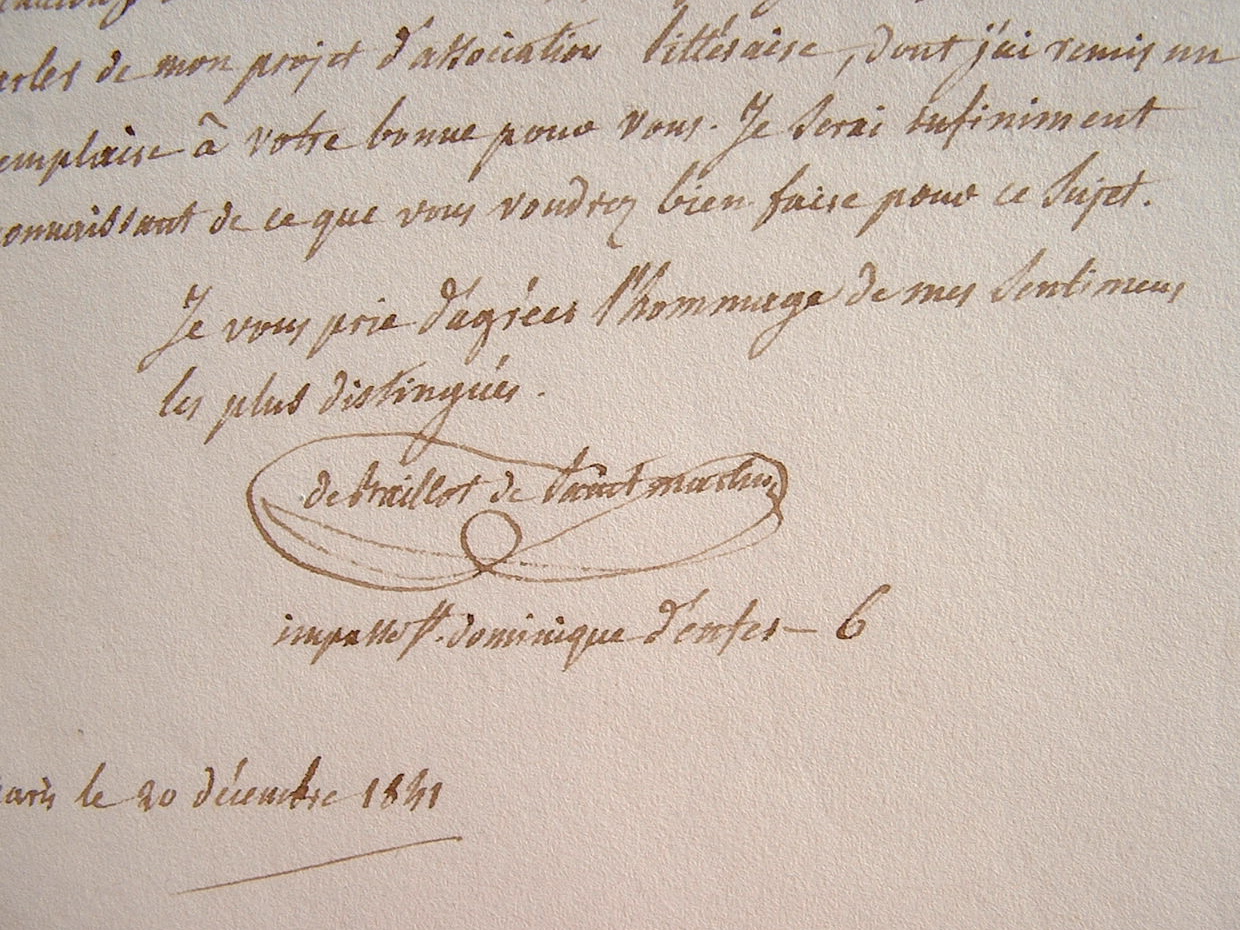 arler de mon projet d'association littéraire, dont j'ai remis un
emplaire à votre bonne pour vous. Je serai infiniment
connaissant de ce que vous voudrez bien faire pour ce sujet.
Je vous prie d'agréer l'hommage de mes sentimens
les plus distingués.
de Saint martin
impasse St. dominique d'enfer – 6
aris le 20 décembre 1841